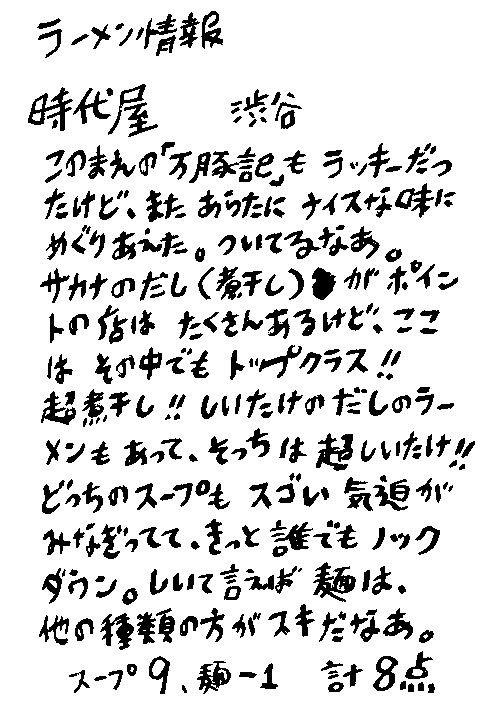 ラーメン情報
時代屋 渋谷
このまえの「万豚記」も ラッキーだっ
たけど、また あらたに ナイスな味に
めぐりあえた。ついてるなあ。
サカナのだし(煮干し)がポイン
トの店は たくさんあるけど、ここ
は その中でも トップクラス!!
超煮干し!! しいたけのだしのラー
メンも あって、そっちは 超しいたけ!!
どっちのスープも スゴい 気迫が
みなぎってて、きっと 誰でも ノック
ダウン。しいて言えば 麺は、
他の種類の方がスキだなあ。
スープ9、麺-1 計8点